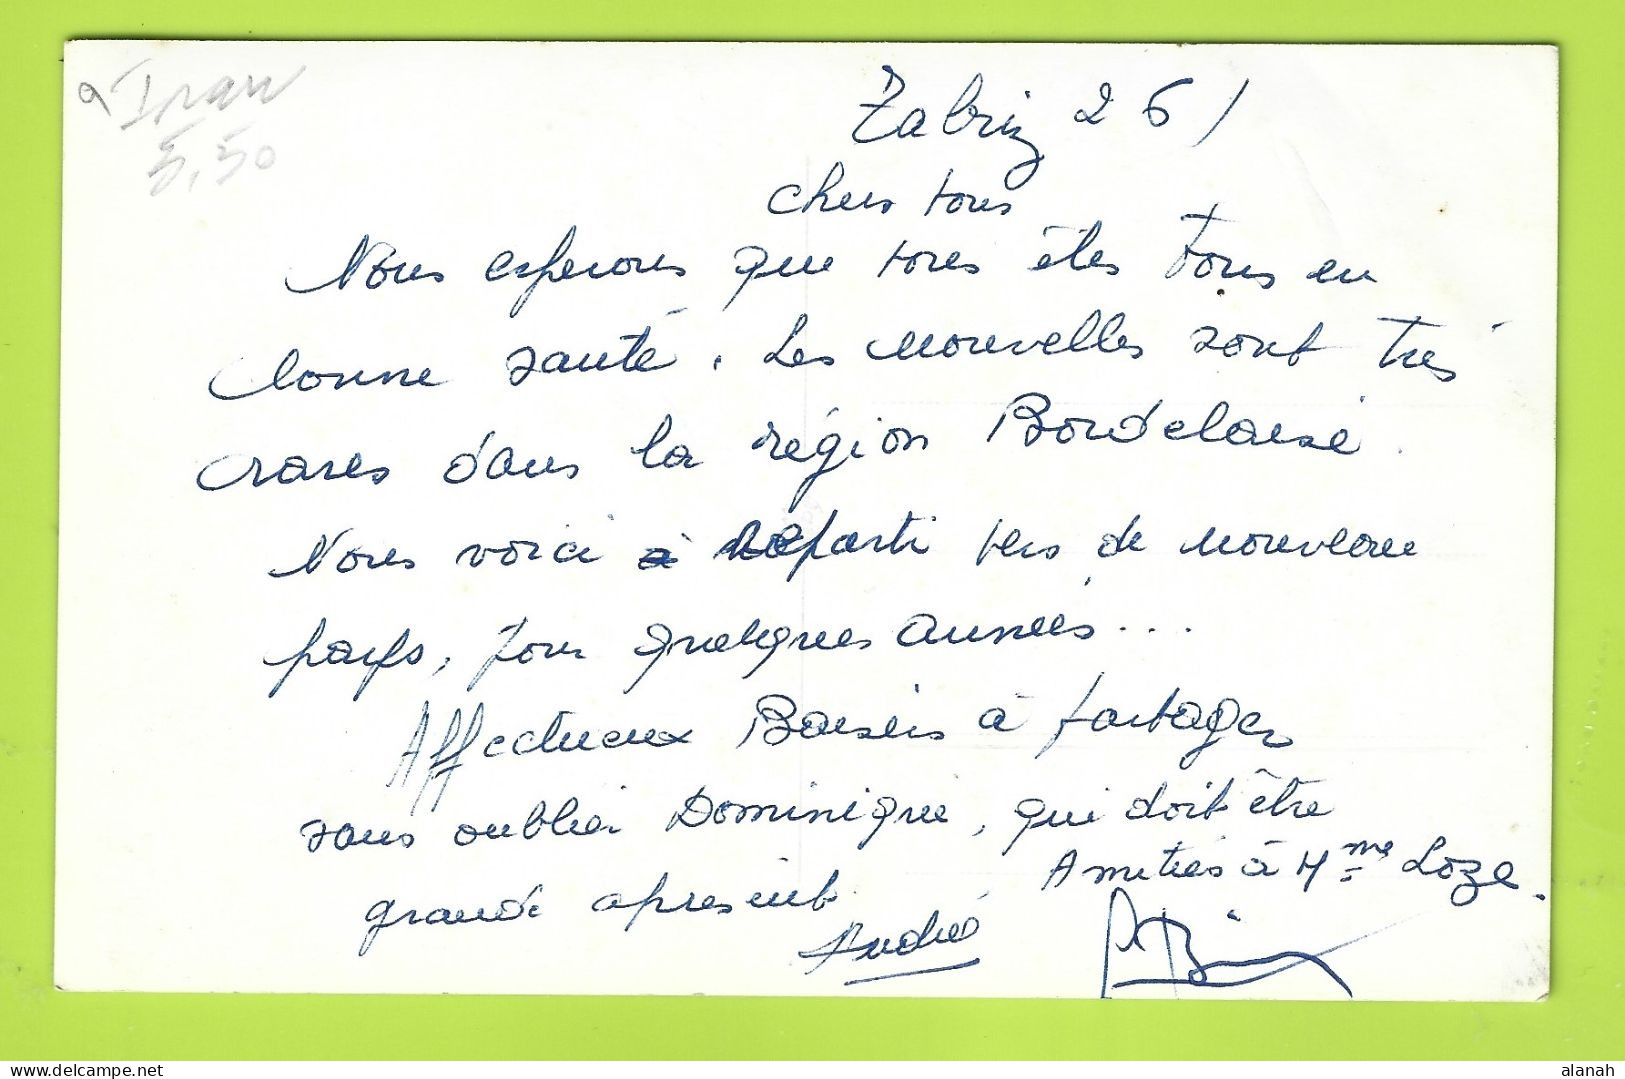 Iran
5,50
Tabriz 26/
Chers tous
Nous esperons que tous êtes tous en
bonne santé. Les nouvelles sont très
rares dans la région Bordelaise.
Nous voici reparti vers de nouveau
pays, pour quelques années...
Affectueux Baisers à partager
sans oublier Dominique, qui doit être
grande apresent.
Amitiés à Mme Loze.
André
alanah